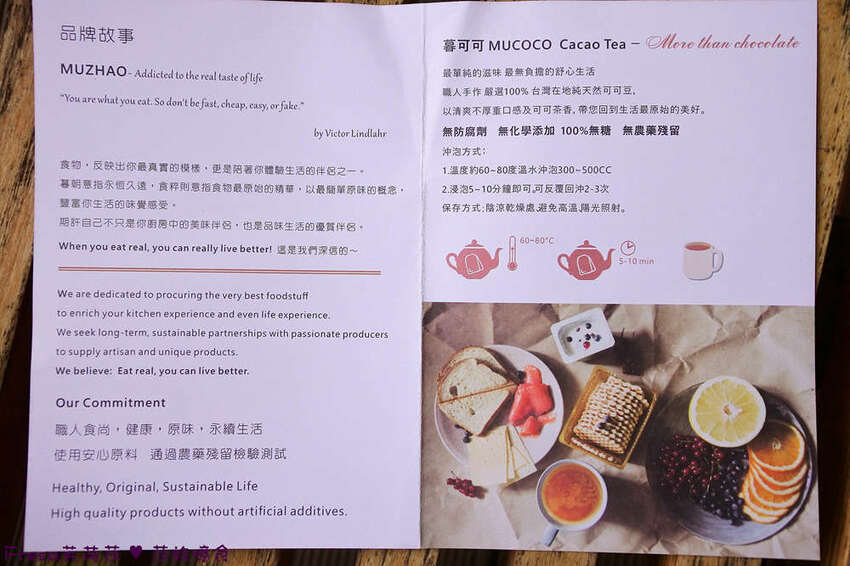 品牌故事
MUZHAO- Addicted to the real taste of life
“You are what you eat. So don't be fast, cheap, easy, or fake.”
by Victor Lindlahr
食物，反映出你最真實的模樣，更是陪著你體驗生活的伴侶之一。
暮朝意指永恆久遠，食粹則意指食物最原始的精華，以最簡單原味的概念，
豐富你生活的味覺感受。
期許自己不只是你廚房中的美味伴侶，也是品味生活的優質伴侶。
When you eat real, you can really live better! 這是我們深信的～
We are dedicated to procuring the very best foodstuff
to enrich your kitchen experience and even life experience.
We seek long-term, sustainable partnerships with passionate producers
to supply artisan and unique products.
We believe: Eat real, you can live better.
Our Commitment
職人食尚，健康，原味，永續生活
使用安心原料 通過農藥殘留檢驗測試
Healthy, Original, Sustainable Life
High quality products without artificial additives.
暮可可 MUCOCO Cacao Tea – More than chocolate
最單純的滋味 最無負擔的舒心生活
職人手作 嚴選100% 台灣在地純天然可可豆,
以清爽不厚重口感及可可茶香, 帶您回到生活最原始的美好。
無防腐劑 無化學添加 100%無糖 無農藥殘留
沖泡方式:
1.溫度約60~80度溫水沖泡300~500CC
2.浸泡5~10分鐘即可,可反覆回沖2-3次
保存方式:陰涼乾燥處,避免高溫,陽光照射。
60~80°C
5-10 min